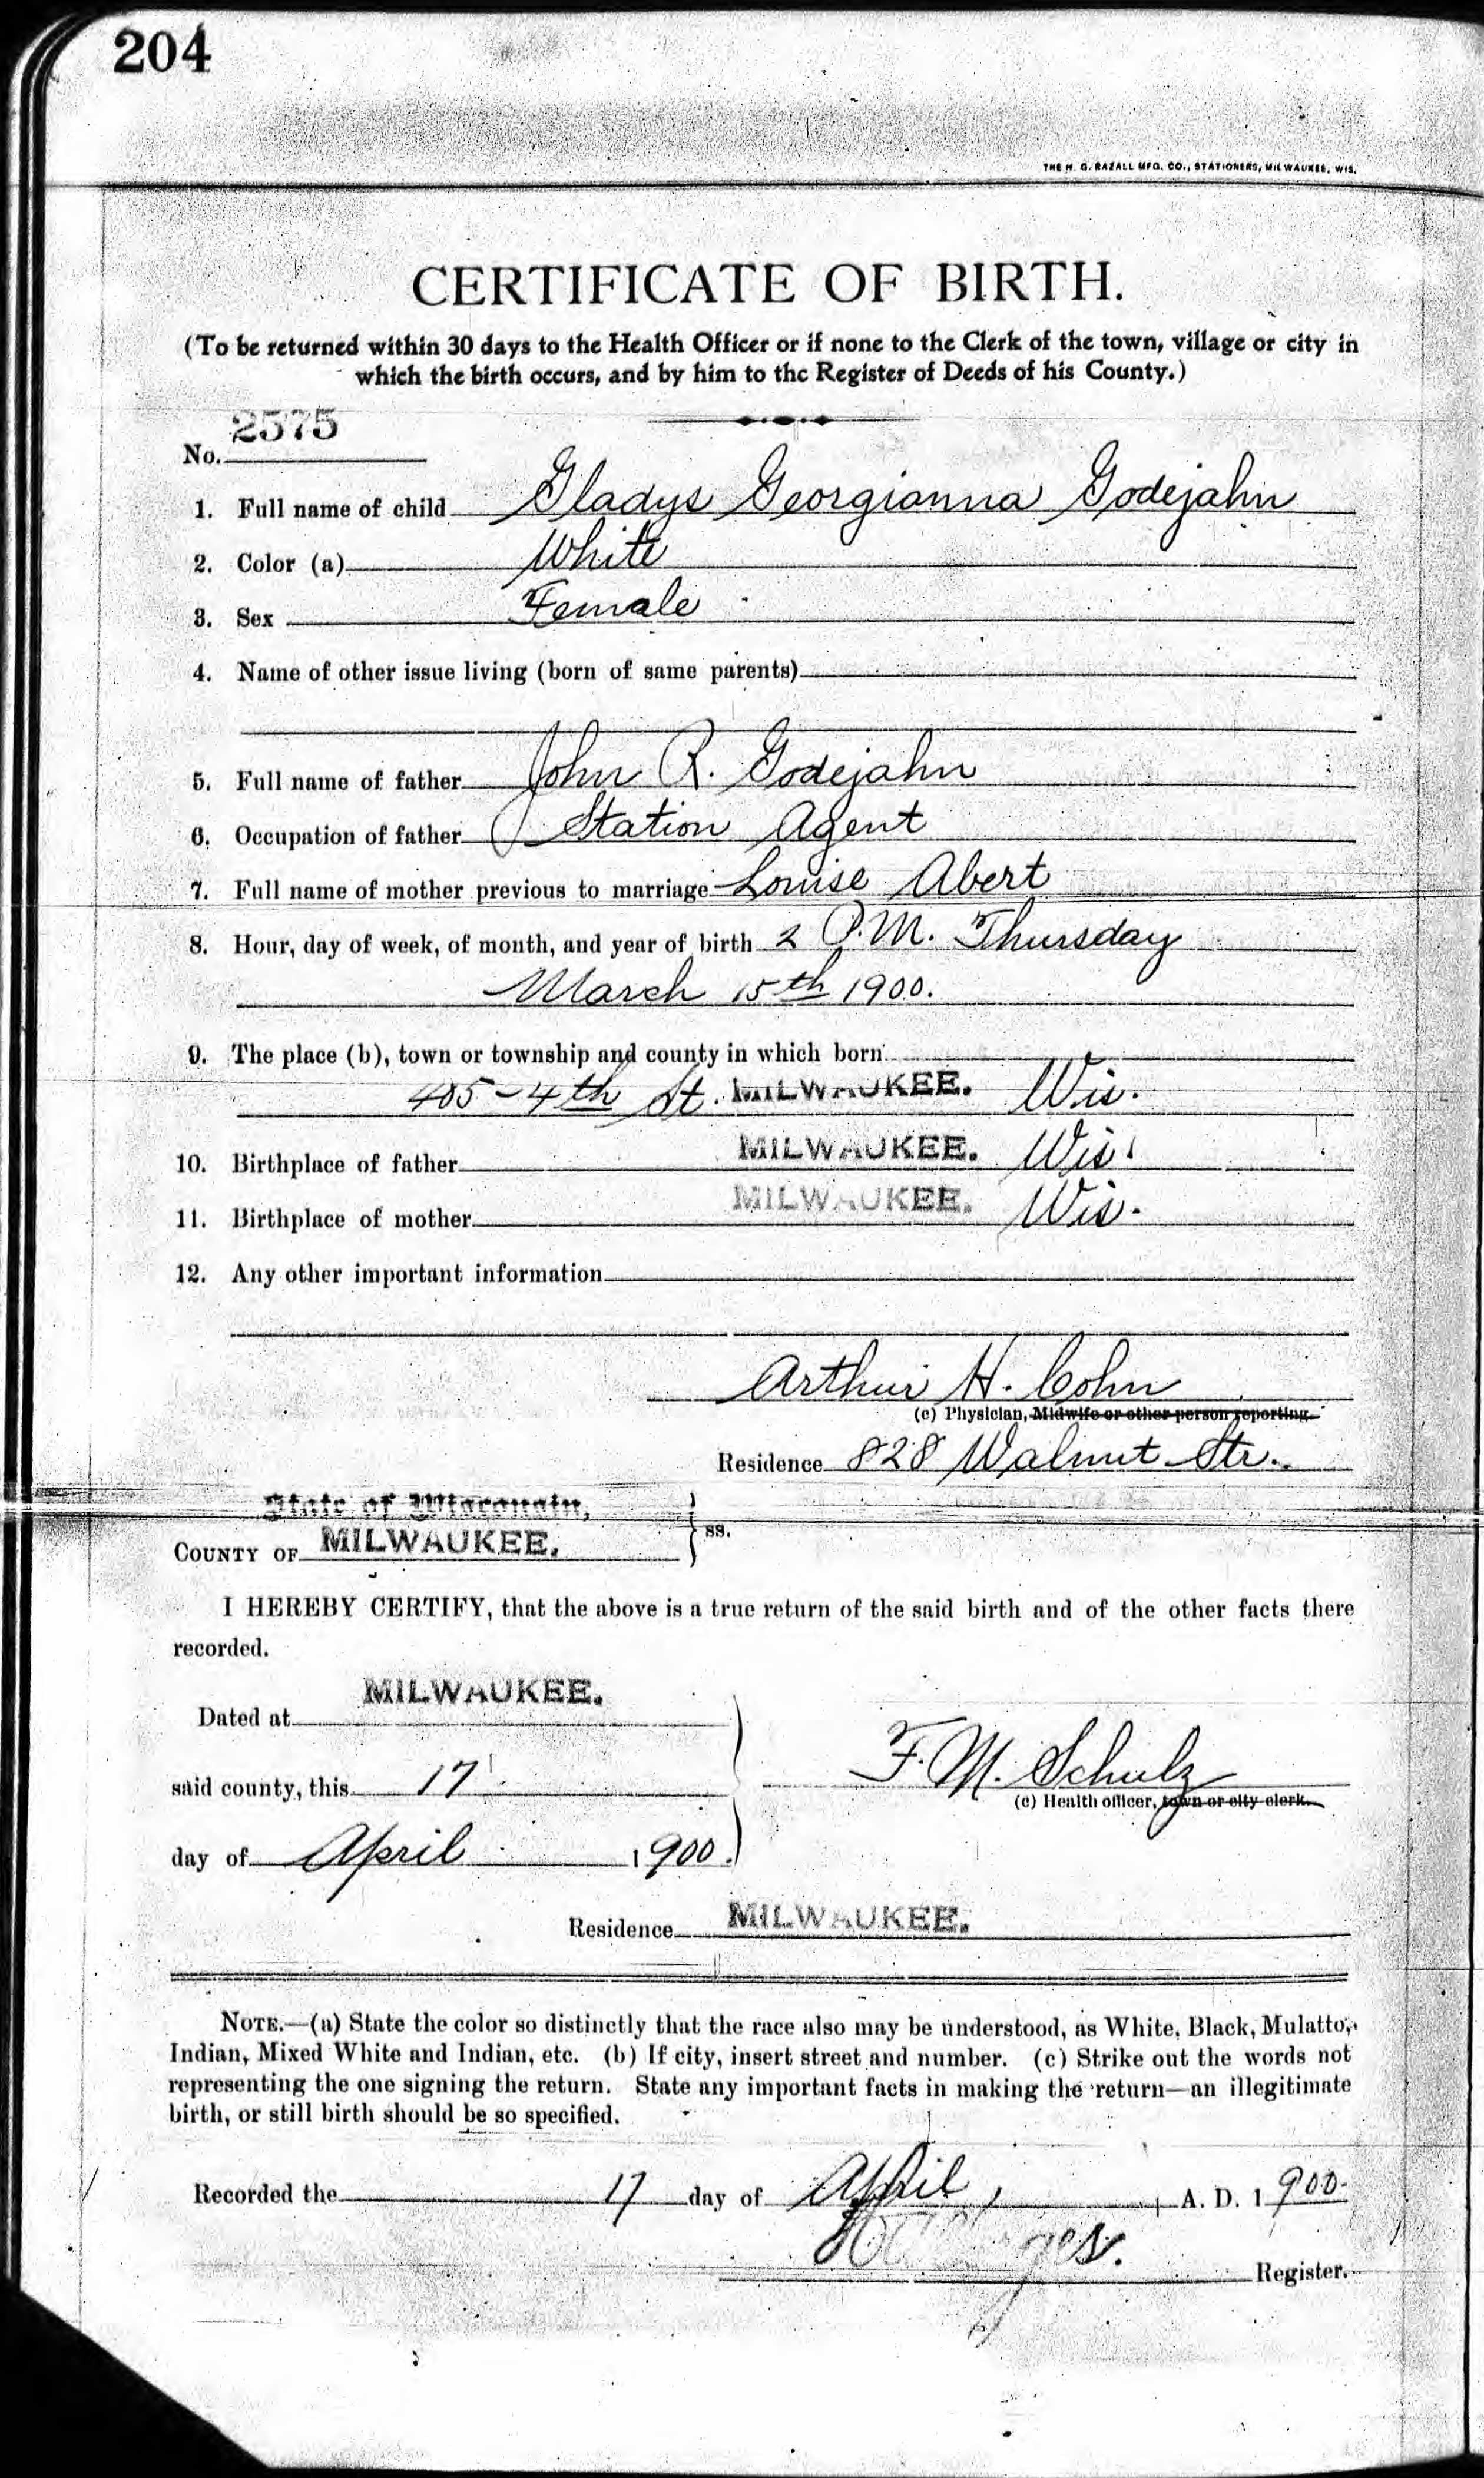 204
THE H. G. RAZALL MFG. CO., STATIONERS, MILWAUKEE, WIS.
CERTIFICATE OF BIRTH.
(To be returned within 30 days to the Health Officer or if none to the Clerk of the town, village or city in
which the birth occurs, and by him to the Register of Deeds of his County.)
No. 2575
1. Full name of child Gladys Georgianna Godejahn
2. Color (a) White
3. Sex Female
4. Name of other issue living (born of same parents)
5. Full name of father John R. Godejahn
6. Occupation of father Station Agent
7. Full name of mother previous to marriage Louise Abert
8. Hour, day of week, of month, and year of birth 2 P.M. Thursday
March 15th 1900.
9. The place (b), town or township and county in which born
405-4th St. MILWAUKEE. Wis.
10. Birthplace of father MILWAUKEE. Wis.
11. Birthplace of mother MILWAUKEE. Wis.
12. Any other important information
Arthur H. Cohn
(c) Physician, Midwife or other person reporting.
Residence 828 Walnut Str.
State of Wisconsin,
COUNTY OF MILWAUKEE. } ss.
I HEREBY CERTIFY, that the above is a true return of the said birth and of the other facts there
recorded.
Dated at MILWAUKEE.
said county, this 17
F. M. Schulz
(c) Health officer, town or city clerk.
day of April 1900.
Residence MILWAUKEE.
NOTE.—(a) State the color so distinctly that the race also may be understood, as White, Black, Mulatto,
Indian, Mixed White and Indian, etc. (b) If city, insert street and number. (c) Strike out the words not
representing the one signing the return. State any important facts in making the return—an illegitimate
birth, or still birth should be so specified.
Recorded the 17 day of April, A. D. 1900.
Register.